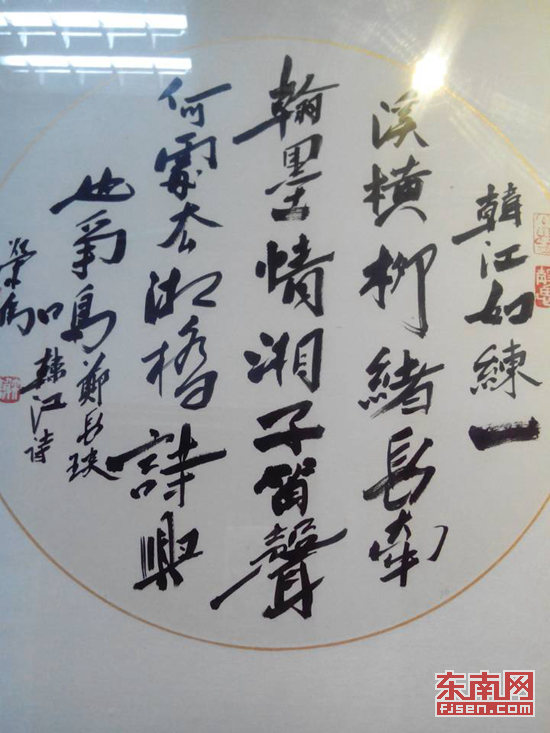 韓江如練一
溪横柳緒長牽
翰墨情湘子笛聲
何處去湘橋詩興
也爭鳴
鄭長瑛
韓江詩
东南网
FJSEN.COM